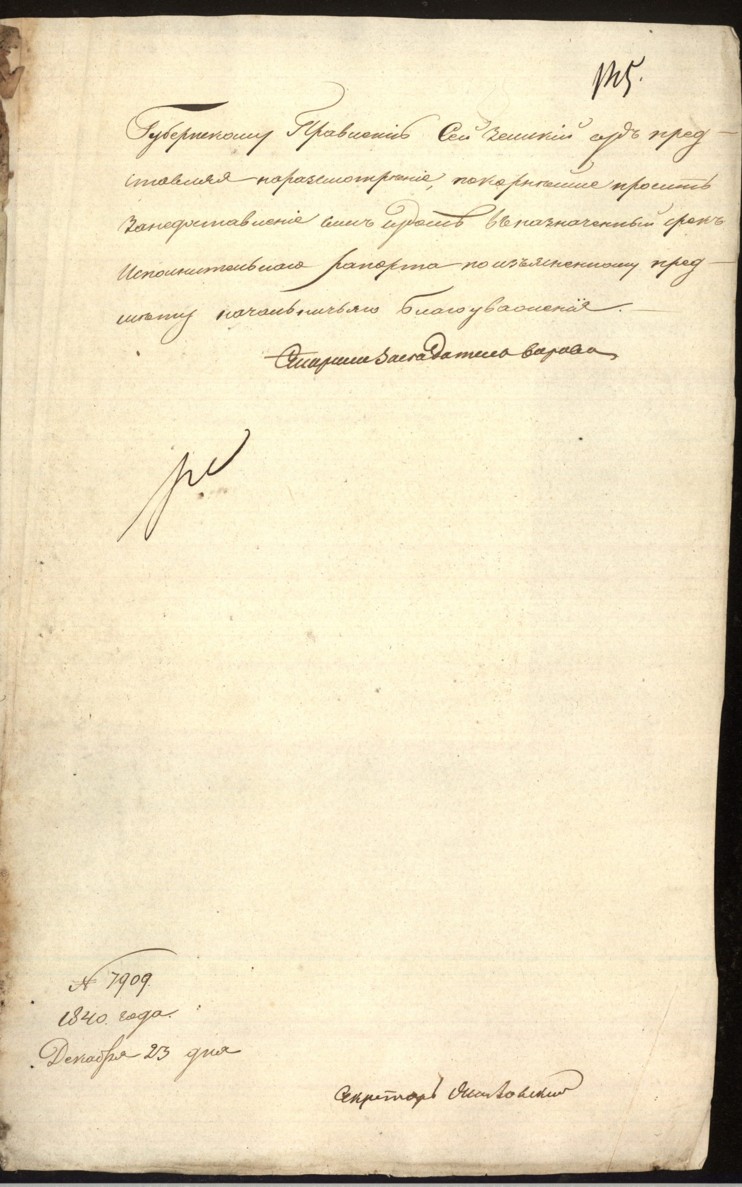 145.
Губернскому Правленію Сей Земскій судъ пред-
ставляя на разсмотреніе, покорнейше проситъ
Занедоставленіе симъ Судомъ въ назначенный срокъ
Исполнительнаго рапорта по изъясненному пред-
мету начальничьяго благоуваженія.
Старшій Заседатель
N 7909.
1840. года.
Декабря 23 дня
Секретарь